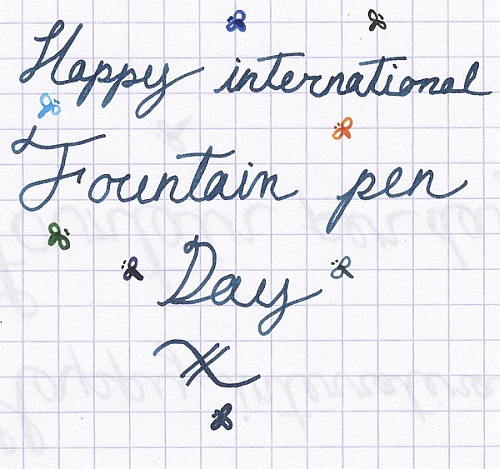 Happy international
Fountain pen
Day
x